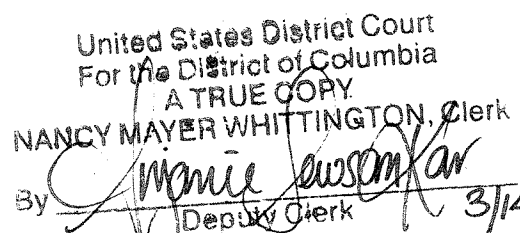 United States District Court
For the District of Columbia
A TRUE COPY
NANCY MAYER WHITTINGTON, Clerk
By
Deputy Clerk 3/14